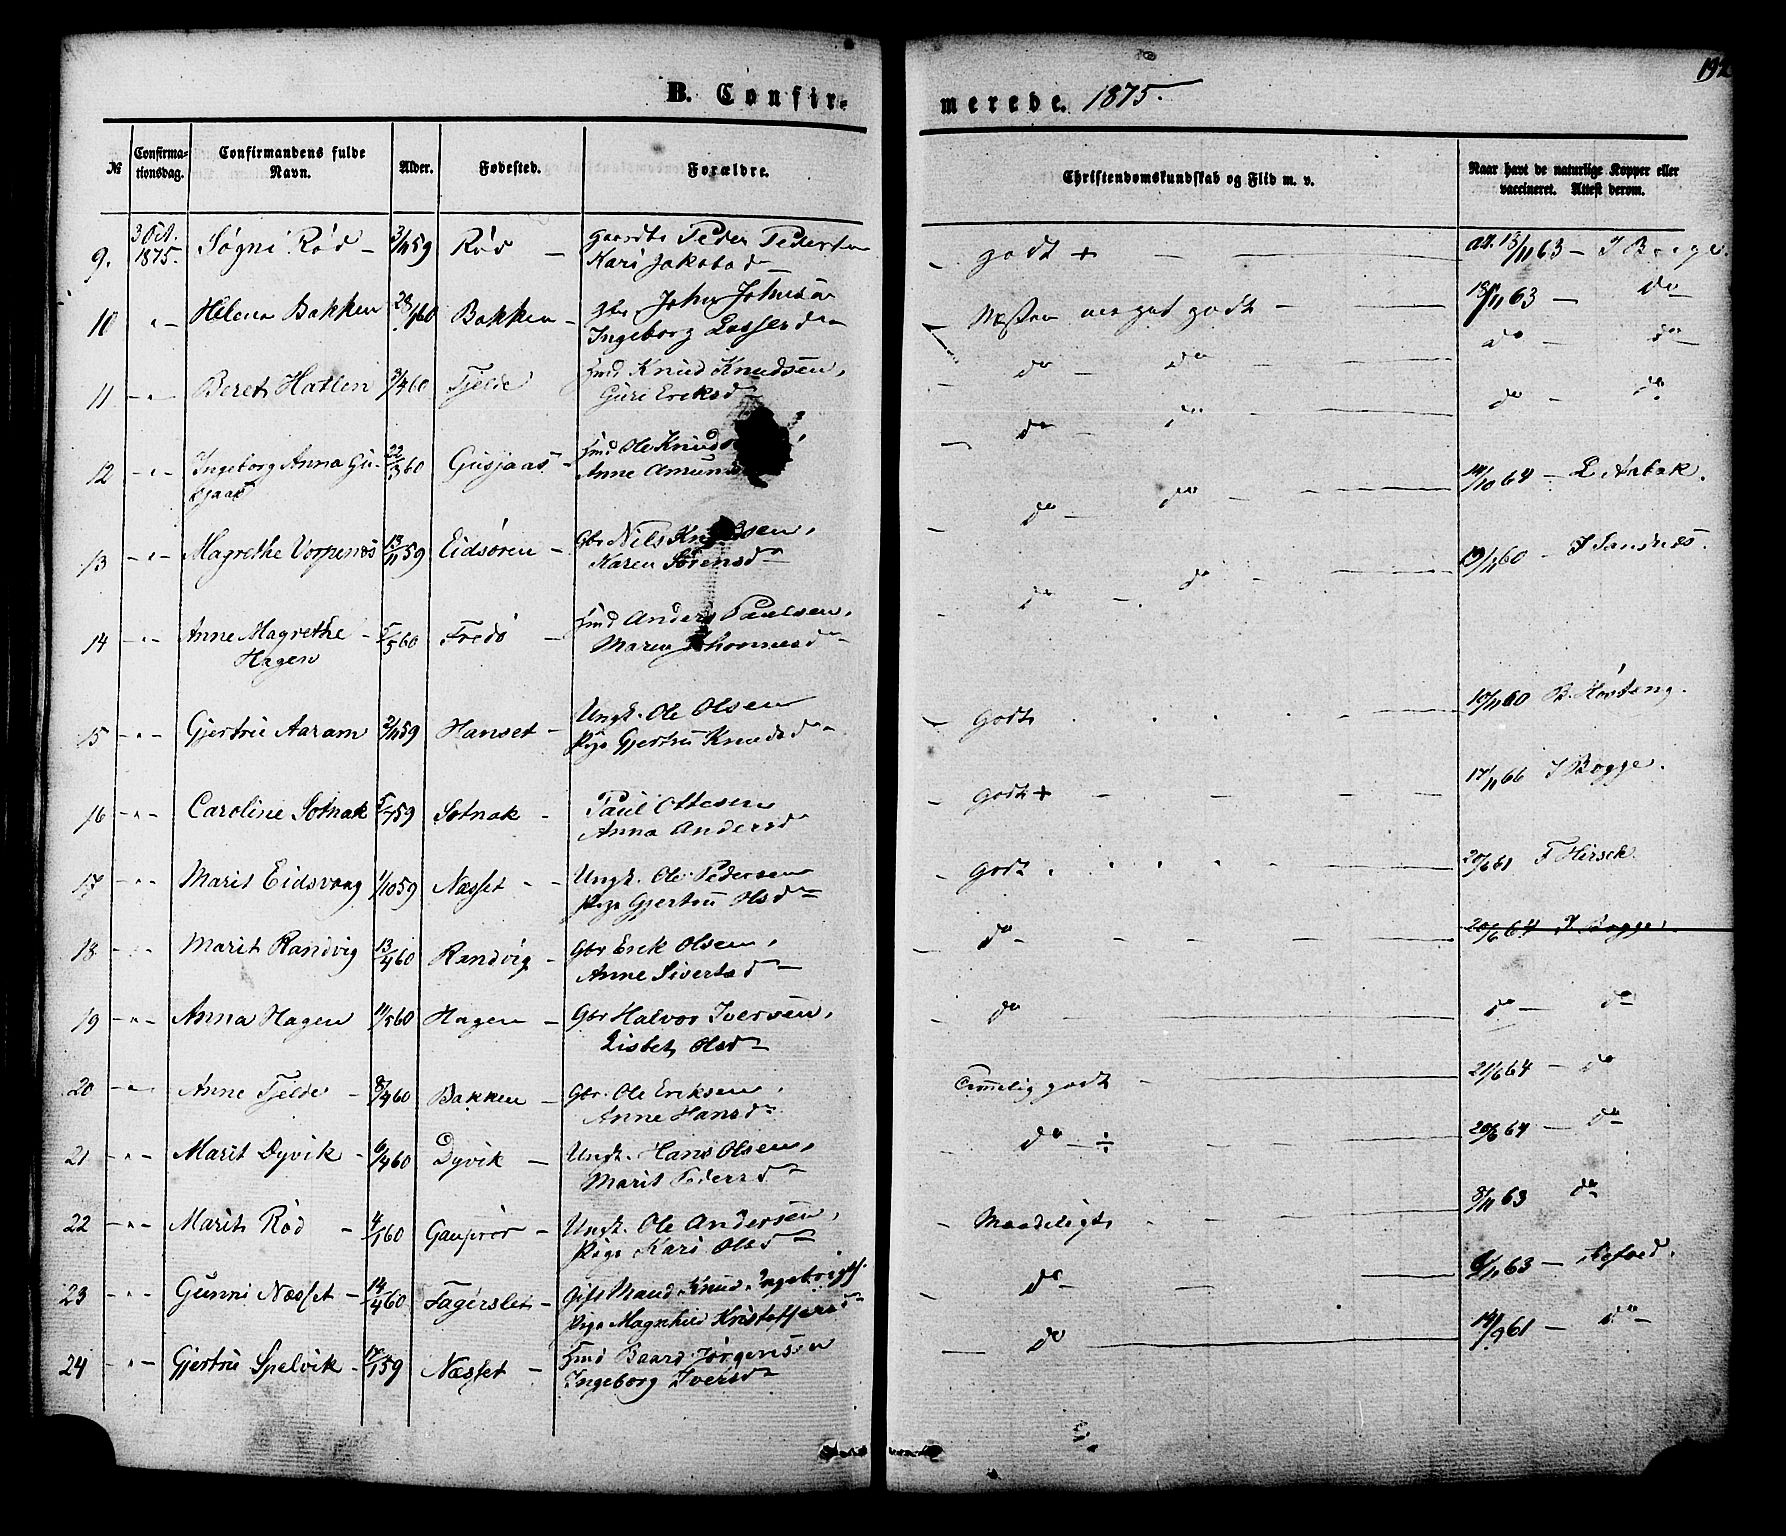 192
B. Confir- merede. 1875.
№ Confirma-tionsdag. Confirmandens fulde Navn. Alder. Fødested. Forældre. Christendomskundskab og Flid m. v. Naar havt de naturlige Kopper eller vaccineret. Attest derom.
9. 3 Oct. 1875. Søgni Rød - 3/11 59 Rød - Gaardbr Peder Pedersen
Kari Jakobsd - godt + - at. 13/11 63 - J Bogge.
10 - " - Helena Bakken 28/1 60 Bakken - Gbr. John Johnsen
Ingeborg Lassesd - Næsten meget godt - 18/11 63 - do
11 - " - Beret Hatlen 9/4 60 Tjelde Hmd Knud Knudsen,
Guri Eriksd - do do - do - do
12 - " - Ingeborg Anna Gu-
sjaas 22/3 60 Gusjaas - Hmd Ole Knuds
Anne Amun - do - do - do do
13 - " - Magrethe Vorpenæs 13/11 59 Eidsøren - Gbr Nils Knudsen,
Karen Sørensd - do - do - 14/10 64 - L Aabak.
14 - " - Anne Magrethe -
Hagen 5/5 60 Fredø - Hmd Anders Paulsen,
Maren Thomesd - do - do - 19/11 60 - J Sandnes.
15 - " - Gjertru Aaram 2/11 59 Hanset - Ungk. Ole Olsen
Pige Gjertru Knudsd - Godt 10/11 60 B. Høsteng.
16 - " - Caroline Sotnak 5/7 59 Sotnak - Paul Ottesen
Anna Andersd - Godt + - 17/11 66 J Bogge.
17 - " - Marit Eidsvaag 1/10 59 Næsset - - Ungk. Ole Pedersen
Pige Gjertru Olsd - Godt. 20/6 61 F Hirsch.
18 - " - Marit Randvig 13/4 60 Randvig - Gbr Erik Olsen,
Anne Sivertsd - do - 20/6 64 J Bogge.
19 - " - Anna Hagen 11/5 60 Hagen - Gbr Halvor Iversen,
Lisbet Olsd - do - do - do
20 - " - Anne Tjelde - 8/4 60 Bakken - Gbr. Ole Eriksen,
Anne Hansd - Temmelig godt - 21/6 64 - do
21 - " - Marit Dyvik - 6/4 60 Dyvik - Ungk. Hans Olsen,
Marit Pedersd - do - ÷ 20/6 64 - do
22 - " - Marit Rød - 4/1 60 Gauprør - Ungk. Ole Andersen,
Pige Kari Olsd - Maadeligt 8/11 63 do
23 - " - Gunni Næsset - 14/4 60 Fagerslet - Gift Mand Knud Ingebrigts.
Pige Magnhild Kristoffersd - do - 6/11 63 -
24 - " - Gjertru Spelvik - 17/1 59 Næsset - Hmd Baard Jørgensen
Ingeborg Iversd - do - 14/9 61 - do